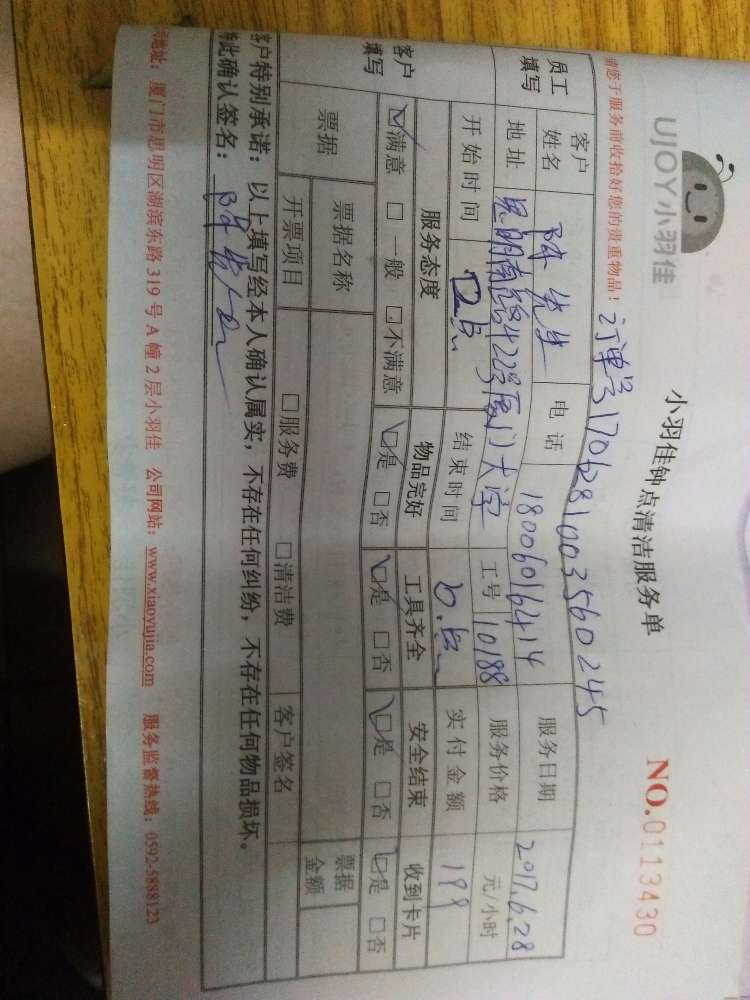 UJOY小羽佳
小羽佳钟点清洁服务单
NO.0113430
请您于服务前收拾好您的贵重物品!
订单号1706281003560245
员工填写
客户姓名 陈先生 电话 18006016414 服务日期 2017.6.28
地址 思明南路422号厦门大学 工号 10188 服务价格 元/小时
开始时间 结束时间 实付金额 199
客户填写
服务态度 物品完好 工具齐全 安全结束 收到卡片
☑满意 □一般 □不满意 ☑是 □否 ☑是 □否 ☑是 □否 ☑是 □否
票据 票据名称 客户签名 票据金额
开票项目 □服务费 □清洁费
客户特别承诺:以上填写经本人确认属实,不存在任何纠纷,不存在任何物品损坏。
特此确认签名:陈
司地址:厦门市思明区湖滨东路319号A幢2层小羽佳 公司网站:www.xiaoyujia.com 服务监督热线:0592-5888123